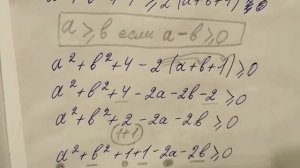 a² + b² + 4 ≥ 2(a+b+1) ≥ 0
a ≥ b если a - b ≥ 0
a² + b² + 4 - 2(a+b+1) ≥ 0
a² + b² + 4 - 2a - 2b - 2 ≥ 0
a² + b² + 2 - 2a - 2b ≥ 0
1+1
a² + b² + 1 + 1 - 2a - 2b ≥ 0